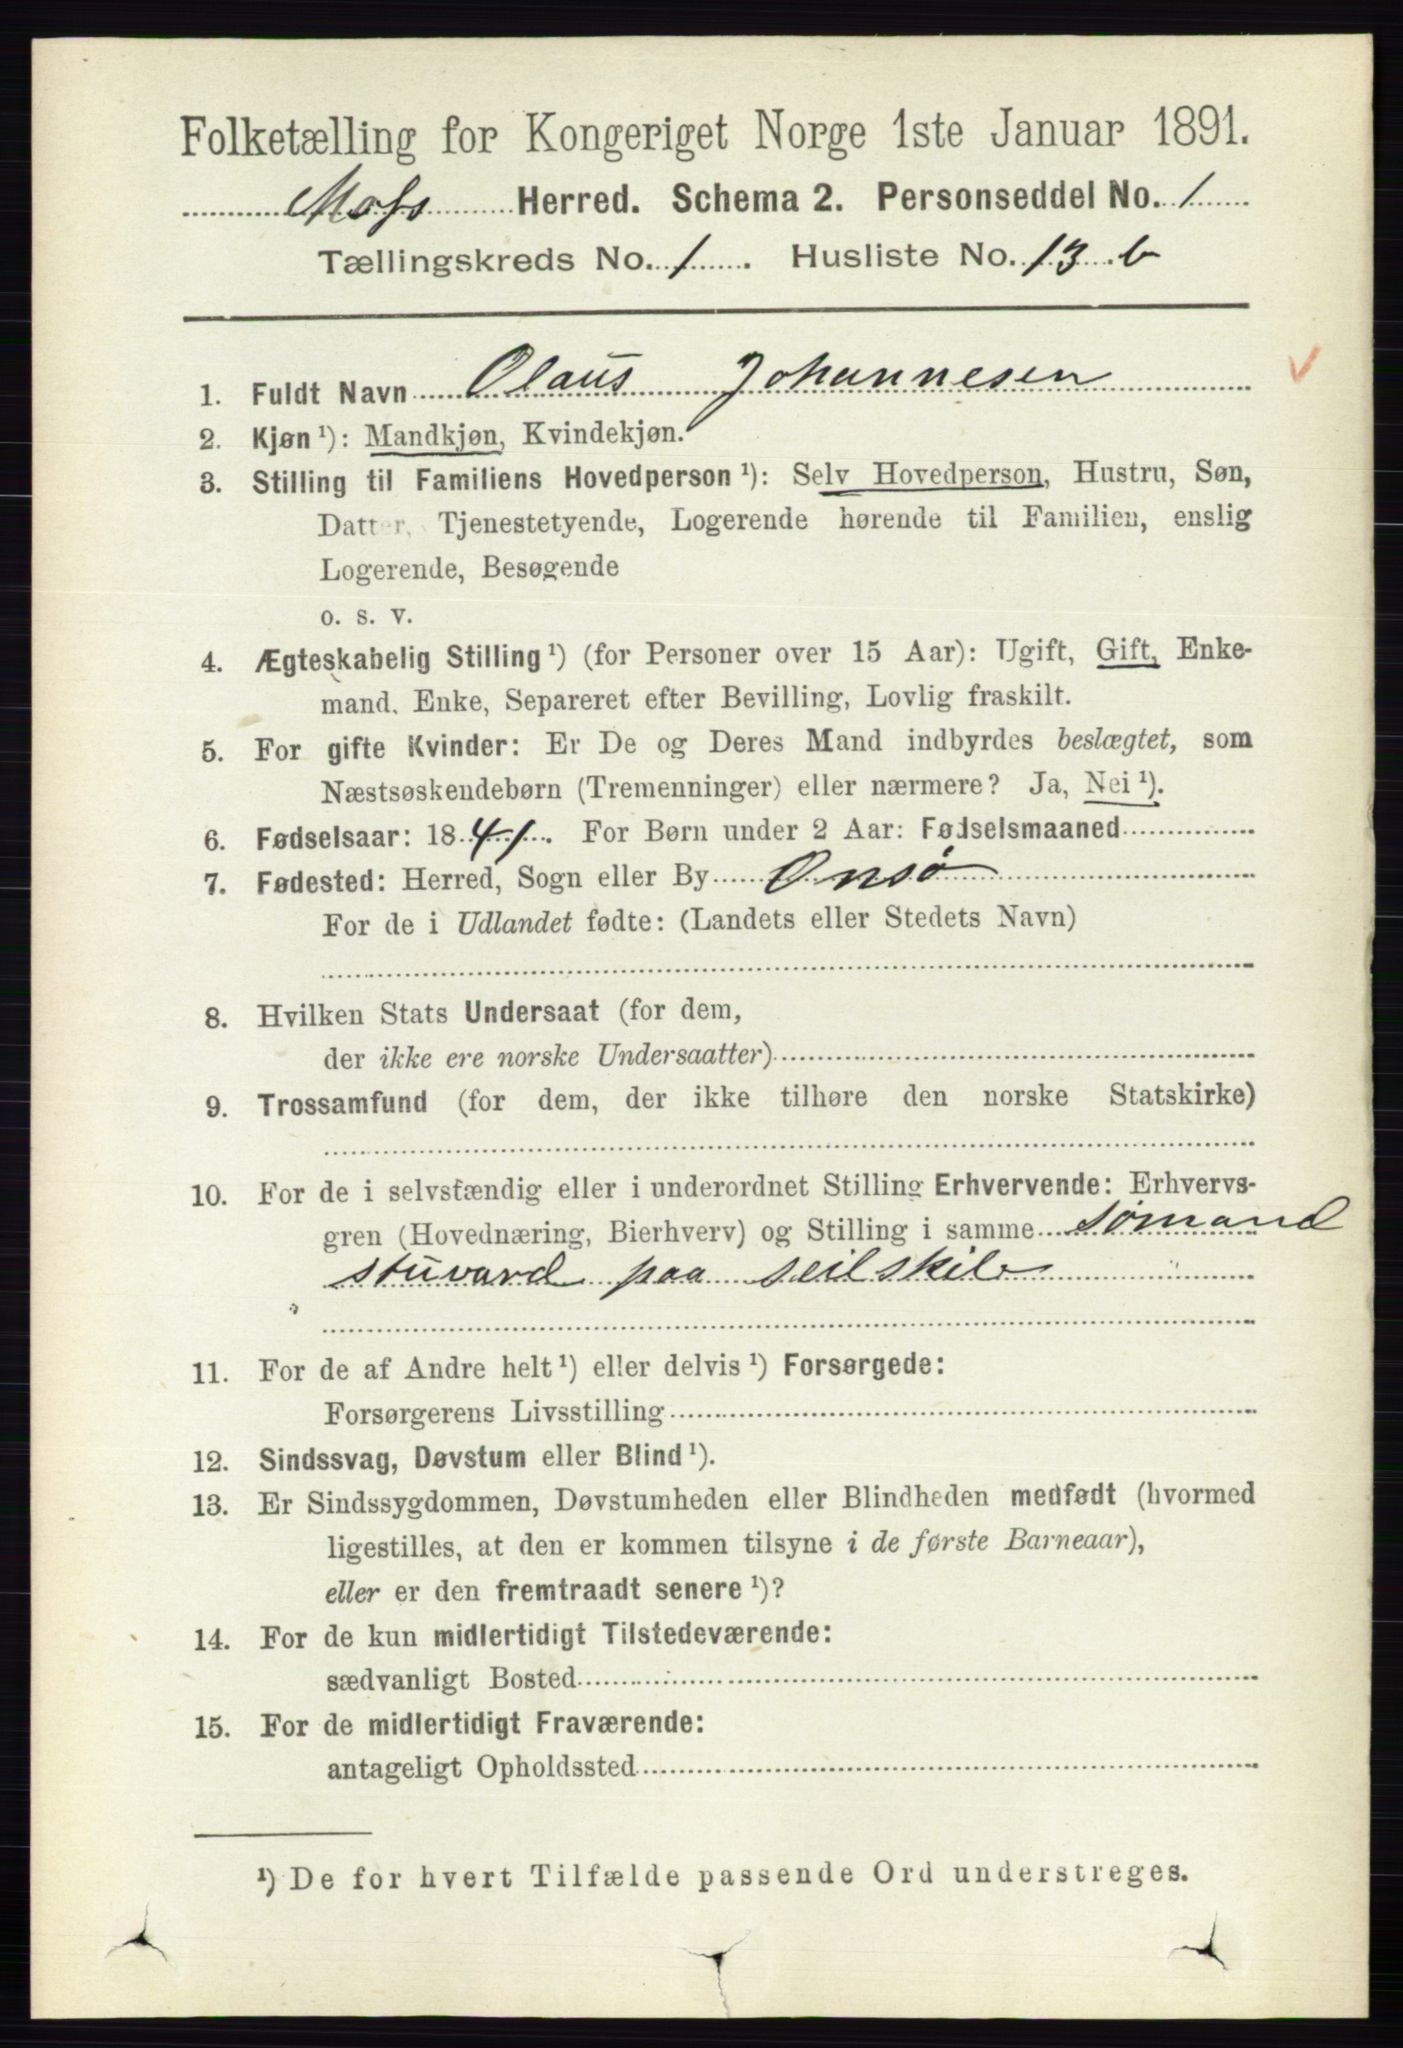 Folketælling for Kongeriget Norge 1ste Januar 1891.
Moss Herred. Schema 2. Personseddel No. 1
Tællingskreds No. 1. Husliste No. 13 b
1. Fuldt Navn Olaus Johannesen
2. Kjøn ¹): Mandkjøn, Kvindekjøn.
3. Stilling til Familiens Hovedperson ¹): Selv Hovedperson, Hustru, Søn,
Datter, Tjenestetyende, Logerende hørende til Familien, enslig
Logerende, Besøgende
o. s. v.
4. Ægteskabelig Stilling ¹) (for Personer over 15 Aar): Ugift, Gift, Enke-
mand, Enke, Separeret efter Bevilling, Lovlig fraskilt.
5. For gifte Kvinder: Er De og Deres Mand indbyrdes beslægtet, som
Næstsøskendebørn (Tremenninger) eller nærmere? Ja, Nei ¹).
6. Fødselsaar: 1841. For Børn under 2 Aar: Fødselsmaaned
7. Fødested: Herred, Sogn eller By Onsø
For de i Udlandet fødte: (Landets eller Stedets Navn)
8. Hvilken Stats Undersaat (for dem,
der ikke ere norske Undersaatter)
9. Trossamfund (for dem, der ikke tilhøre den norske Statskirke)
10. For de i selvstændig eller i underordnet Stilling Erhvervende: Erhvervs-
gren (Hovednæring, Bierhverv) og Stilling i samme sømand
stuvard paa seilskib
11. For de af Andre helt ¹) eller delvis ¹) Forsørgede:
Forsørgerens Livsstilling
12. Sindssvag, Døvstum eller Blind ¹).
13. Er Sindssygdommen, Døvstumheden eller Blindheden medfødt (hvormed
ligestilles, at den er kommen tilsyne i de første Barneaar),
eller er den fremtraadt senere ¹)?
14. For de kun midlertidigt Tilstedeværende:
sædvanligt Bosted
15. For de midlertidigt Fraværende:
antageligt Opholdssted
¹) De for hvert Tilfælde passende Ord understreges.